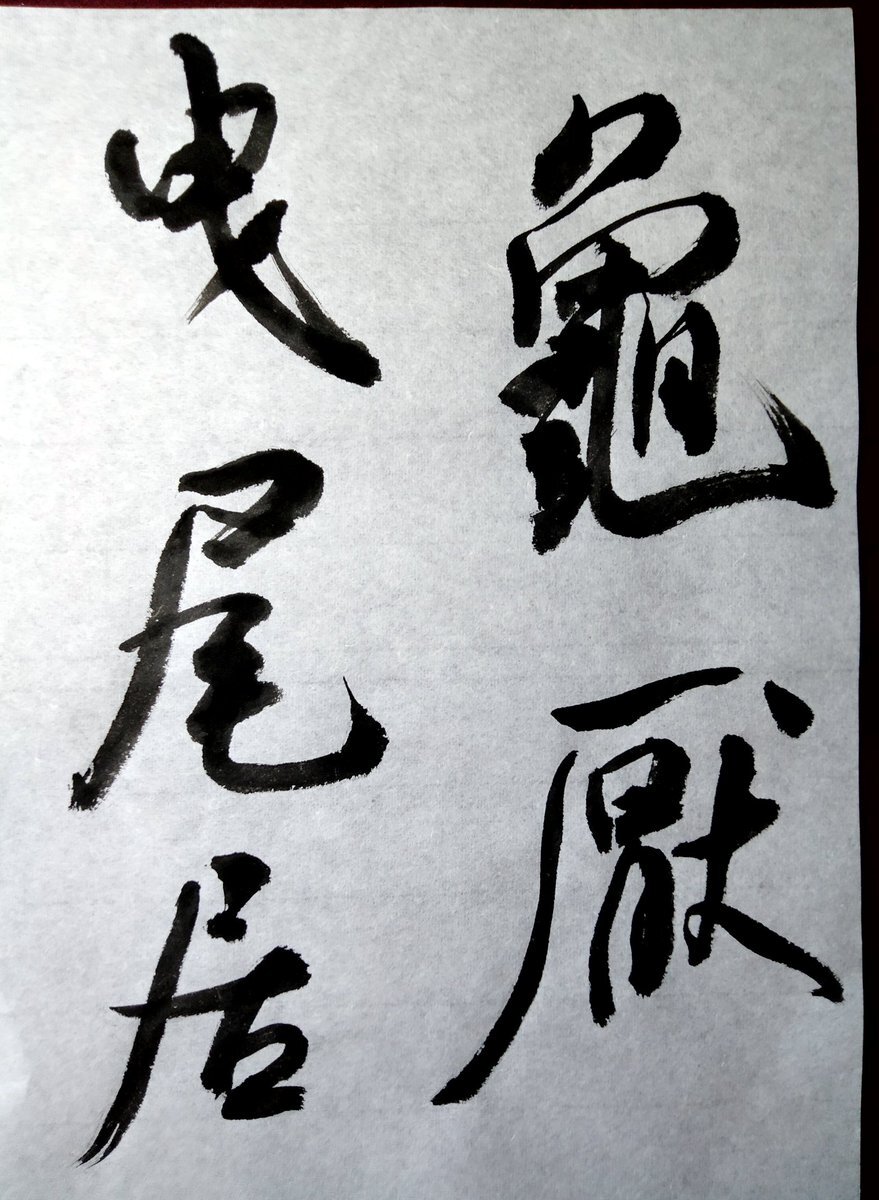 龜厭
曳尾居